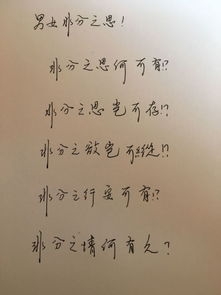 男女非分之思!
非分之思何可有!?
非分之思岂可存!?
非分之欲岂可纵!?
非分之行安可有!?
非分之情何有久?